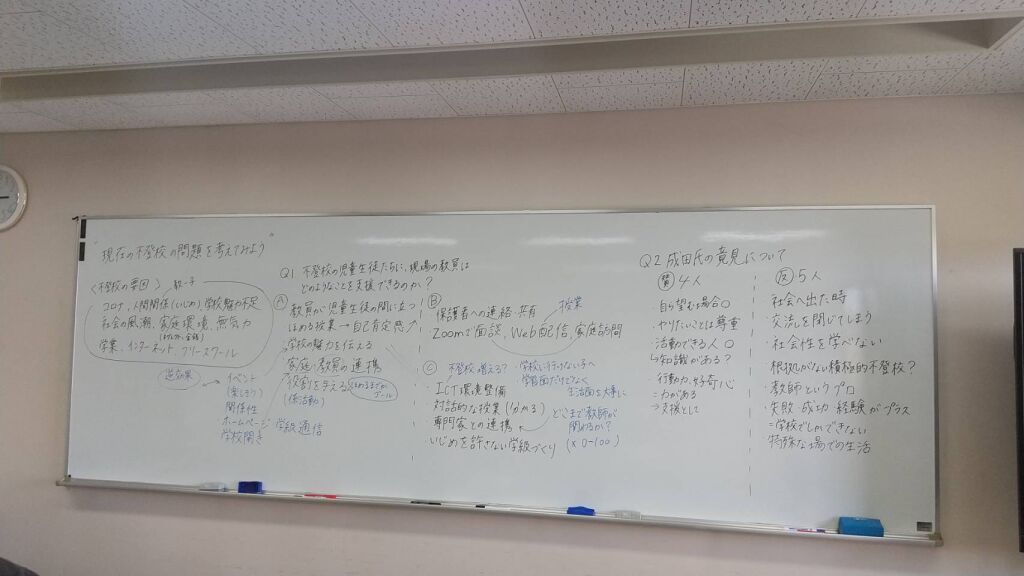 現在の不登校の問題を考えてみよう
<不登校の要因>
コロナ、人間関係(いじめ)、学校魅力不足
社会の風潮、家庭環境、無気力
学業、インターネット、フリースクール
逆効果
イベント
(楽しそう)
関係性
ホームページ
学校開き
学級通信
Q1 不登校の児童生徒たちに、現場の教員は
どのようなことを支援できるのか?
A
教員が児童生徒の間に立つ
ほめる授業→自己肯定感↗
学校の魅力を伝える
家庭・教員の連携
役割を与える
(係活動)
ゴール
B
保護者への連絡・共有
授業
Zoomで面談、Web配信、家庭訪問
C
不登校増える?
学校に行けない子へ
学習面だけでなく
生活面も大事に
・ICT環境整備
対話的な授業(分かる)
専門家との連携
どこまで教師が
関わるか?
(×0-100)
・いじめを許さない学級づくり
Q2 成田氏の意見について
賛 4人
・自ら望む場合○
・やりたいことは尊重
・活動できる人○
↳知識がある?
・行動力、好奇心
=力がある
→支援として
反 5人
・社会へ出た時
・交流を閉じてしまう
・社会性を学べない
根拠がない積極的不登校?
・教師というプロ
・失敗 成功 経験がプラス
=学校でしかできない
特殊な場での生活